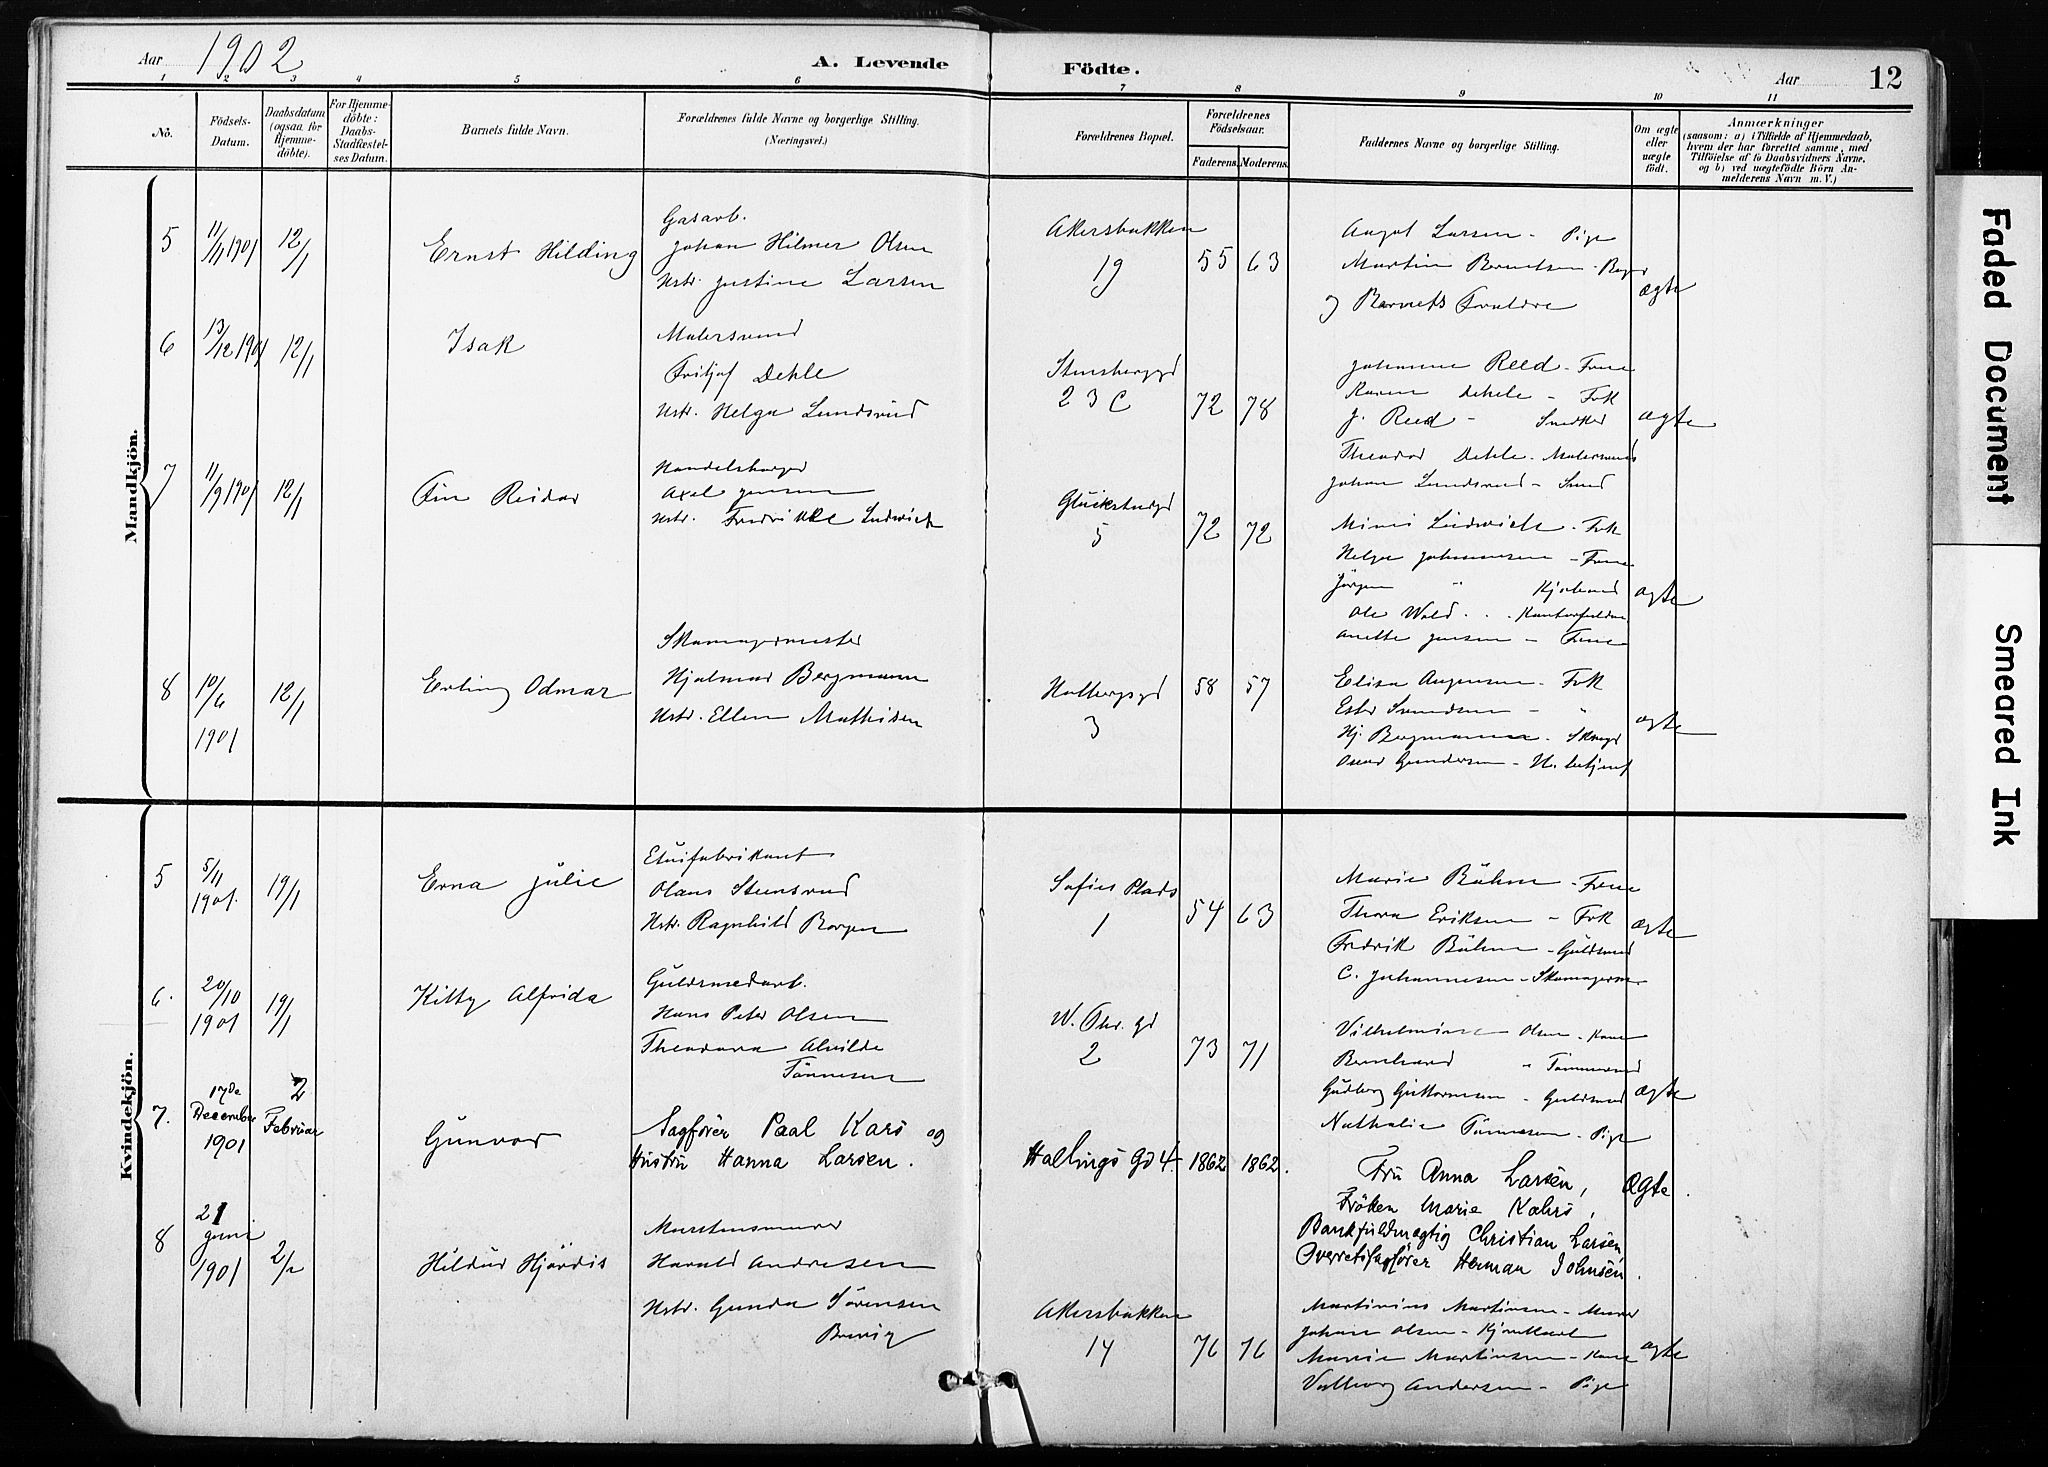 Aar 1902
A. Levende
Födte.
Aar
12
1 2 3 4 5 6 7 8 9 10 11
No.
Födsels-
Datum.
Daabsdatum
(ogsaa for
Hjemme-
döbte).
For Hjemme-
döbte:
Daabs-
Stadfæstel-
ses Datum.
Barnets fulde Navn.
Forældrenes fulde Navne og borgerlige Stilling.
(Næringsvei.)
Forældrenes Bopæl.
Forældrenes
Födselsaar.
Faderens. Moderens.
Faddernes Navne og borgerlige Stilling.
Om ægte
eller
uægte
födt.
Anmærkninger
(saasom: a) i Tilfælde af Hjemmedaab,
hvem der har forrettet samme, med
Tilföielse af to Daabsvidners Navne.
og b) ved uægtefödte Börn An-
melderens Navn m. V.)
Mandkjön.
5
11/11 1901
12/1
Ernst Hilding
Gasarb.
Johan Hilmer Olsen
Hstr. Justine Larsen
Akersbakken
19
55 63
Aagot Larsen - Pige
Martin Berntsen - Bager
og Barnets Forældre
ægte
6
13/12 1901
12/1
Isak
Malersvend
Fritjof Dehle
Hstr. Helga Lundsrud
Stensberggd
23 C
72 78
Johanne Reed - Frue
Karen Dehle - Frk
J. Reed - Snedker
Theodor Dehle - Malersvend
Johan Lundsrud - Smed
ægte
7
11/9 1901
12/1
Fin Reidar
Handelsborger
Axel Jensen
Hstr. Fredrikke Ludwich
Glückstadgd
5
72 72
Mimi Ludwich - Frk
Helga Johannesen - Frue
Jörgen " Kjöbmd
Ole Wold - Kontorfuldm
Anette Jensen - Frue
ægte
8
10/6
1901
12/1
Erling Odmar
Skomagermester
Hjalmar Bergmann
Hstr. Ellen Mathisen
Holbergsgd
3
58 57
Elisa Augensen - Frk
Ester Svendsen - "
Hj. Bergmann - Skomgr
Oscar Gundersen - H. betjent
ægte
Kvindekjön.
5
5/11
1901.
19/1
Erna Julie
Etuifabrikant
Olaus Stensrud
Hstr. Ragnhild Borgen
Sofies Plads
1
54 63
Marie Böhm - Frue
Thora Eriksen - Frk
Fredrik Böhm - Guldsmed
C. Johannesen - Skomagerm
ægte
6.
20/10
1901
19/1
Kitty Alfrida
Guldsmedarb.
Hans Peter Olsen
Theodora Alvilde
Tönnesen
W. Thr. gd
2
73 71
Vilhelmine Olsen - Kone
Bernhard " Tömmermd
Gudborg Guttormsen - Guldsmed
Nathalie Tönnesen - Pige
ægte
7.
17de
December
1901
2
Februar
Gunvor
Sagförer Paal Kars og
Hustru Hanna Larsen.
Hallings Gd 4. 1862 1862.
Fru Anna Larsen,
Fröken Marie Kahrs,
Bankfuldmægtig Christian Larsen,
Overretssagförer Herman Johnsen.
Ægte.
8
21
Juni
1901
2/2
Hildur Hjördis
Murstensmurer
Harald Andresen
Hstr. Gunda Sörensen
Brevig
Akersbakken
14
76 76
Martinius Martinsen - Murer
Johan Olsen - Kjörekarl
Marie Martinsen - Kone
Valborg Andersen - Pige
ægte
Faded Document
Smeared Ink